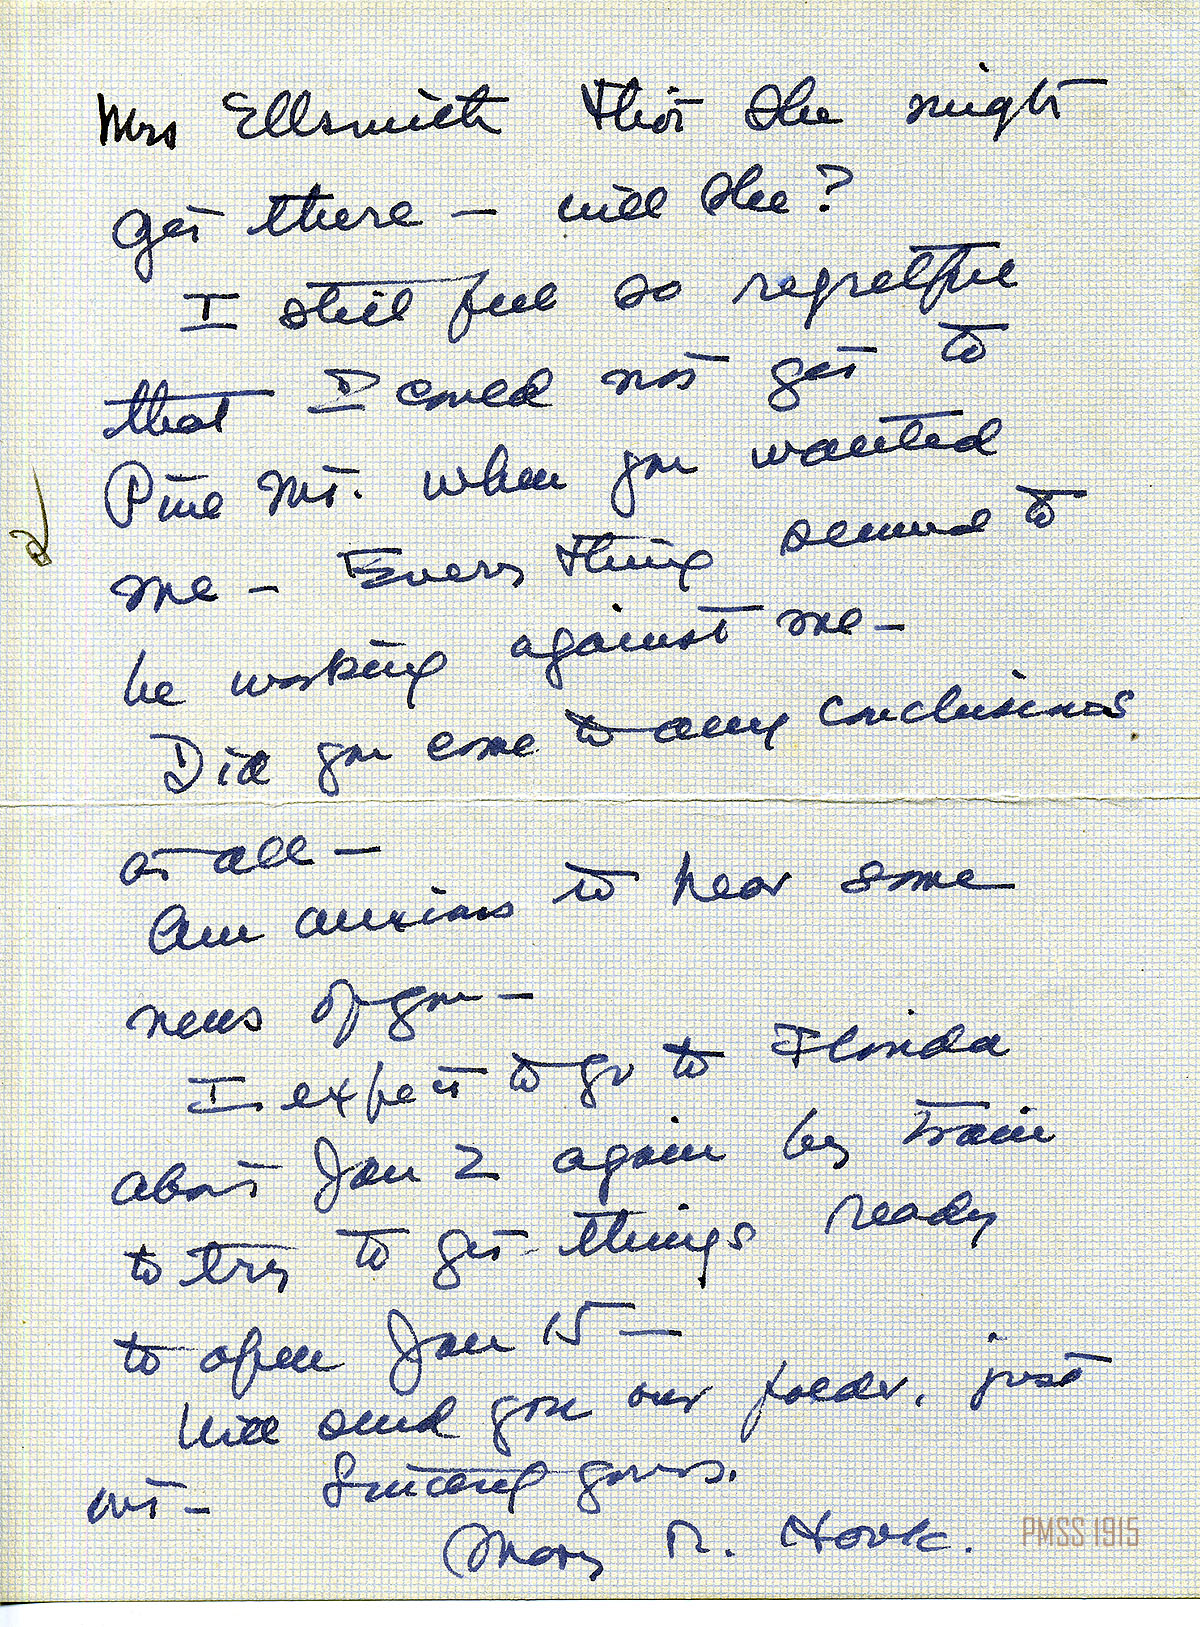 Mrs Ellsmith thot she might
get there – will she?
I still feel so regretful
that I could not get to
Pine Mt. when you wanted
me – Every thing seemed to
be working against me –
Did you come to any conclusions
at all –
Am anxious to hear some
news of you –
I expect to go to Florida
about Jan 2 again by train
to try to get things ready
to open Jan 15 –
Will send you our folder, just
out – Sincerely yours.
Mary R. Hook.
PMSS 1915